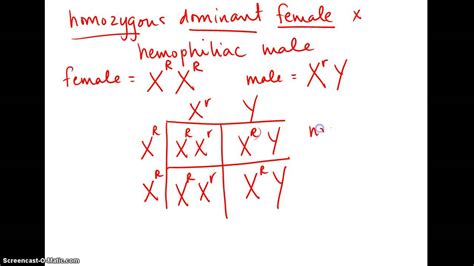 homozygous dominant female x
hemophiliac male
female = X^R X^R male = X^r Y
X^r Y
X^R X^R X^r X^R Y
X^R X^R X^r X^R Y
Screencast-O-Matic.com